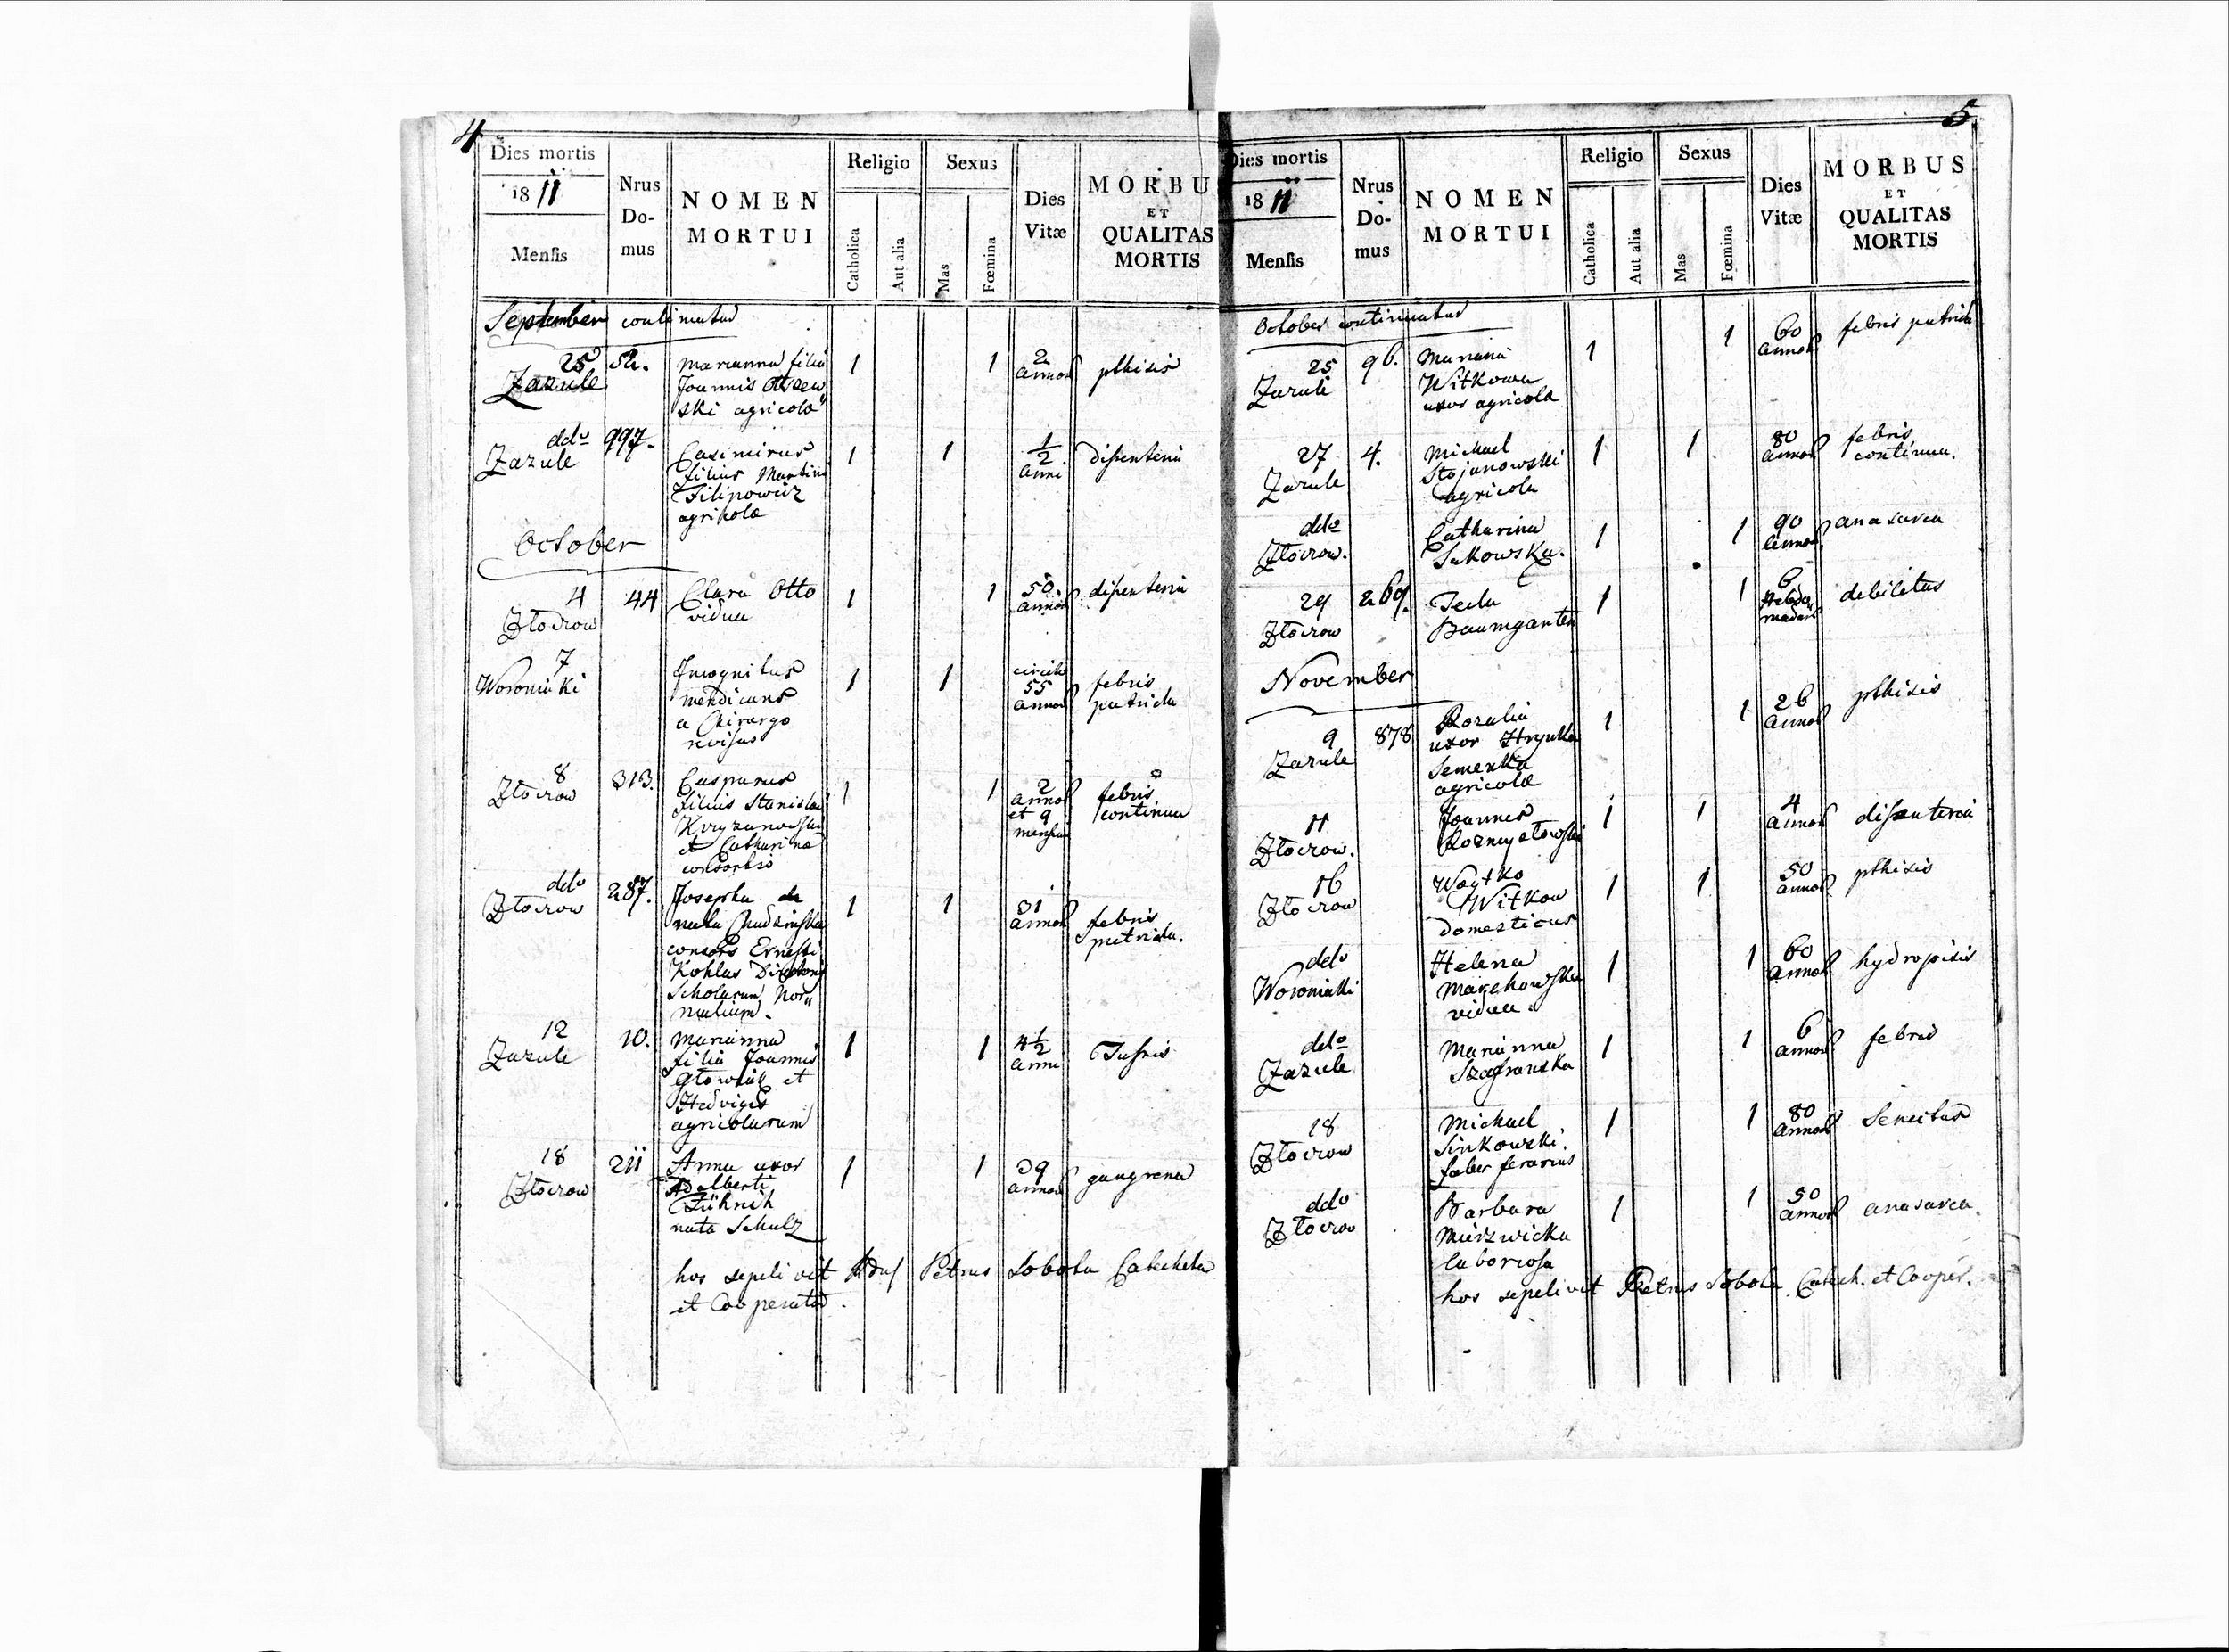 4
Dies mortis
1811
Mensis
Nrus Do- mus
NOMEN MORTUI
Religio
Catholica
Aut alia
Sexus
Mas
Fœmina
Dies Vitæ
MORBU
ET
QUALITAS
MORTIS
September continuatur
25 Zazule 52. Marianna filia 1 1 2 annor phtisis
Joannis
ski agricolæ
ddo Zazule 997. Casimirus 1 1 1/2 anni disenteria
filius Martini
Filipowicz
agrikolæ
October
4 Złoczow 44 Clara Otto 1 1 50. annor disenteria
vidua
7 Woroniaki Incognitus 1 1 circiter 55 annor febris putrida
mendicans
a Chirurgo
revisus
8 Złoczow 313. Casparus 1 1 2 annor et 9 mensium febris continua
filius Stanislai
et Catharinæ
consortis
ddo Złoczow 287. Josepha de 1 1 31 annor febris putrida.
nata Chudzinska
consors Ernesti
Kohlus Directoris
Scholarum Nor„
malium.
12 Zazule 10. Marianna 1 1 4 1/2 anni Tussis
filia Joannis
et
Hedvigis
agricolarum
18 Złoczow 211 Anna uxor 1 1 39 annor gangrena
Adalberti
Führich
nata Schulz
hos sepelivit Petrus Sobola Catecheta
et Cooperator.
5
Dies mortis
1811
Mensis
Nrus Do- mus
NOMEN MORTUI
Religio
Catholica
Aut alia
Sexus
Mas
Fœmina
Dies Vitæ
MORBUS
ET
QUALITAS
MORTIS
October continuatur
25 Zazule 96. Marianna 1 1 60 annor febris putrida
Witkowa
uxor agricolæ
27 Zazule 4. Michael 1 1 80 annor febris continua.
Stojanowski
agricola
ddo Złoczow. Catharina 1 1 90 annor anasarca
Sukowska.
29 Złoczow 269. Tecla 1 1 6 Hebdomadar debilitas
Baumgarten
November
9 Zazule 878 Rozalia 1 1 26 annor phtisis
uxor Hryńka
Semenka
agricolæ
11 Złoczow. Joannes 1 1 4 annor disenteria
Rozmysłowski
16 Złoczow Woytko 1 1 50 annor phtisis
Witkow
Domesticus
ddo Woroniaki Helena 1 1 60 annor hydropisis
Marchowska
vidua.
ddo Zazule Marianna 1 1 6 annor febris
Szafranska
18 Złoczow Michael 1 1 80 annor Senectus
Sinkowski.
faber ferarius
ddo Złoczow Barbara 1 1 50 annor anasarca.
Mierzwicka
laboriosa
hos sepelivit Petrus Sobola Catech. et Cooper.